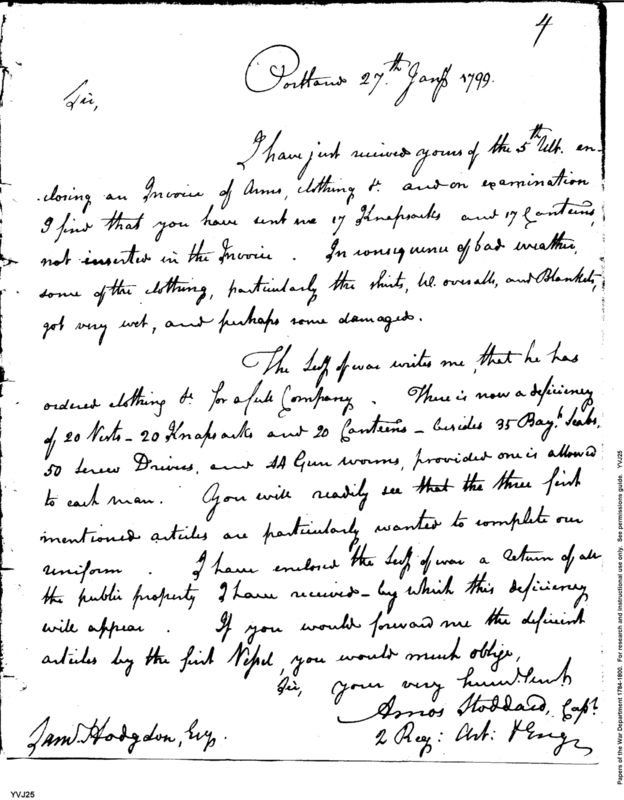 4
Portland 27.th Jany 1799.
Sir,
I have just received yours of the 5th Ult. en-
closing an Invoice of Arms, clothing &c. and on examination
I find that you have sent me 17 Knapsacks and 17 Canteens,
not inserted in the Invoice. In consequence of bad weather,
some of the clothing, particularly the shirts, W. overalls, and Blankets,
got very wet, and perhaps some damaged.
The Secy of war writes me, that he has
ordered clothing &c. for a full Company. There is now a deficiency
of 20 Vests - 20 Knapsacks and 20 Canteens - besides 35 Bayt. Scabs,
50 Screw Drivers, and 44 Gun worms, provided one is allowed
to each man. You will readily see that the three first
mentioned articles are particularly wanted to complete our
uniform. I have enclosed the Secy of war a return of all
the public property I have received - by which this deficiency
will appear. If you would forward me the deficient
articles by the first Vessel, you would much oblige,
Sir, your very humb. Servt
Amos Stoddard, Capt.
2 Reg: Art: & Engr
Saml. Hodgdon, Esq.
YVJ25
Papers of the War Department 1784-1800. For research and instructional use only. See permissions guide. YVJ25